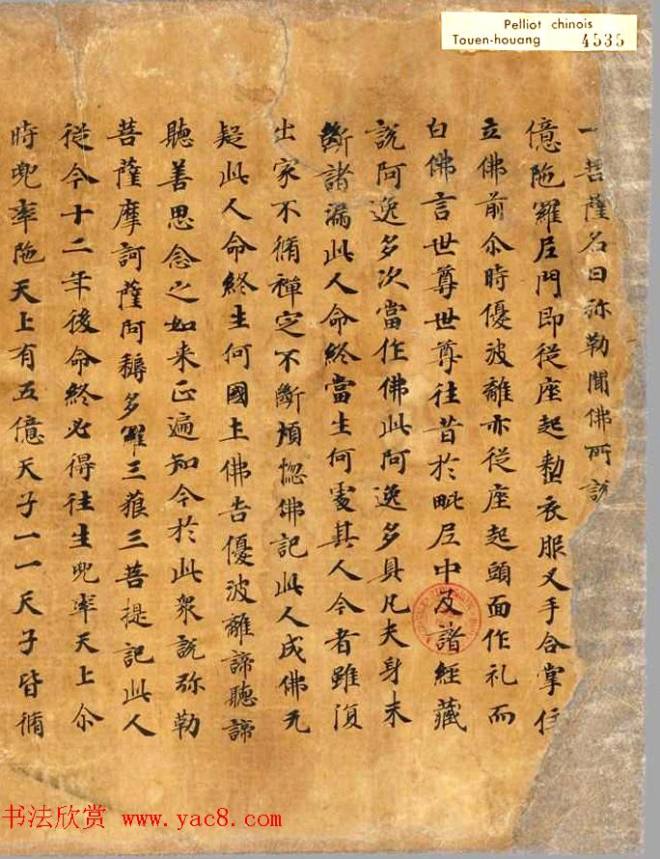 Pelliot chinois
Touen-houang 4535
一菩薩名曰弥勒聞佛所說
億陁羅尼門即從座起整衣服叉手合掌住
立佛前尒時優波離亦從座起頭面作礼而
白佛言世尊世尊往昔於毗尼中及諸經藏
說阿逸多次當作佛此阿逸多具凡夫身未
斷諸漏此人命終當生何處其人今者雖復
出家不脩禪定不斷煩惱佛記此人成佛无
疑此人命終生何國土佛告優波離諦聽諦
聽善思念之如来正遍知今於此衆說弥勒
菩薩摩訶薩阿耨多羅三藐三菩提記此人
從今十二年後命終必得往生兜率天上尒
時兜率陁天上有五億天子一一天子皆脩
书法欣赏 www.yac8.com